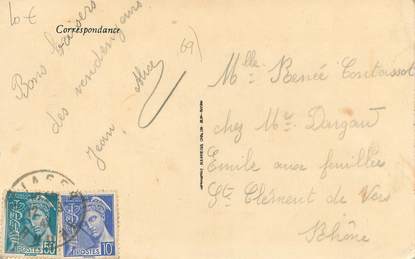 10 €
Correspondance
69)
Bons baisers
des vendangeurs
Jean Alice
Mlle Renée
chez Mr Dargaud
Emile aux feuillées
Ste Clément de Vers
Rhône
POSTES 50
POSTES 10